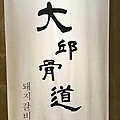 大邱骨道
돼지갈비